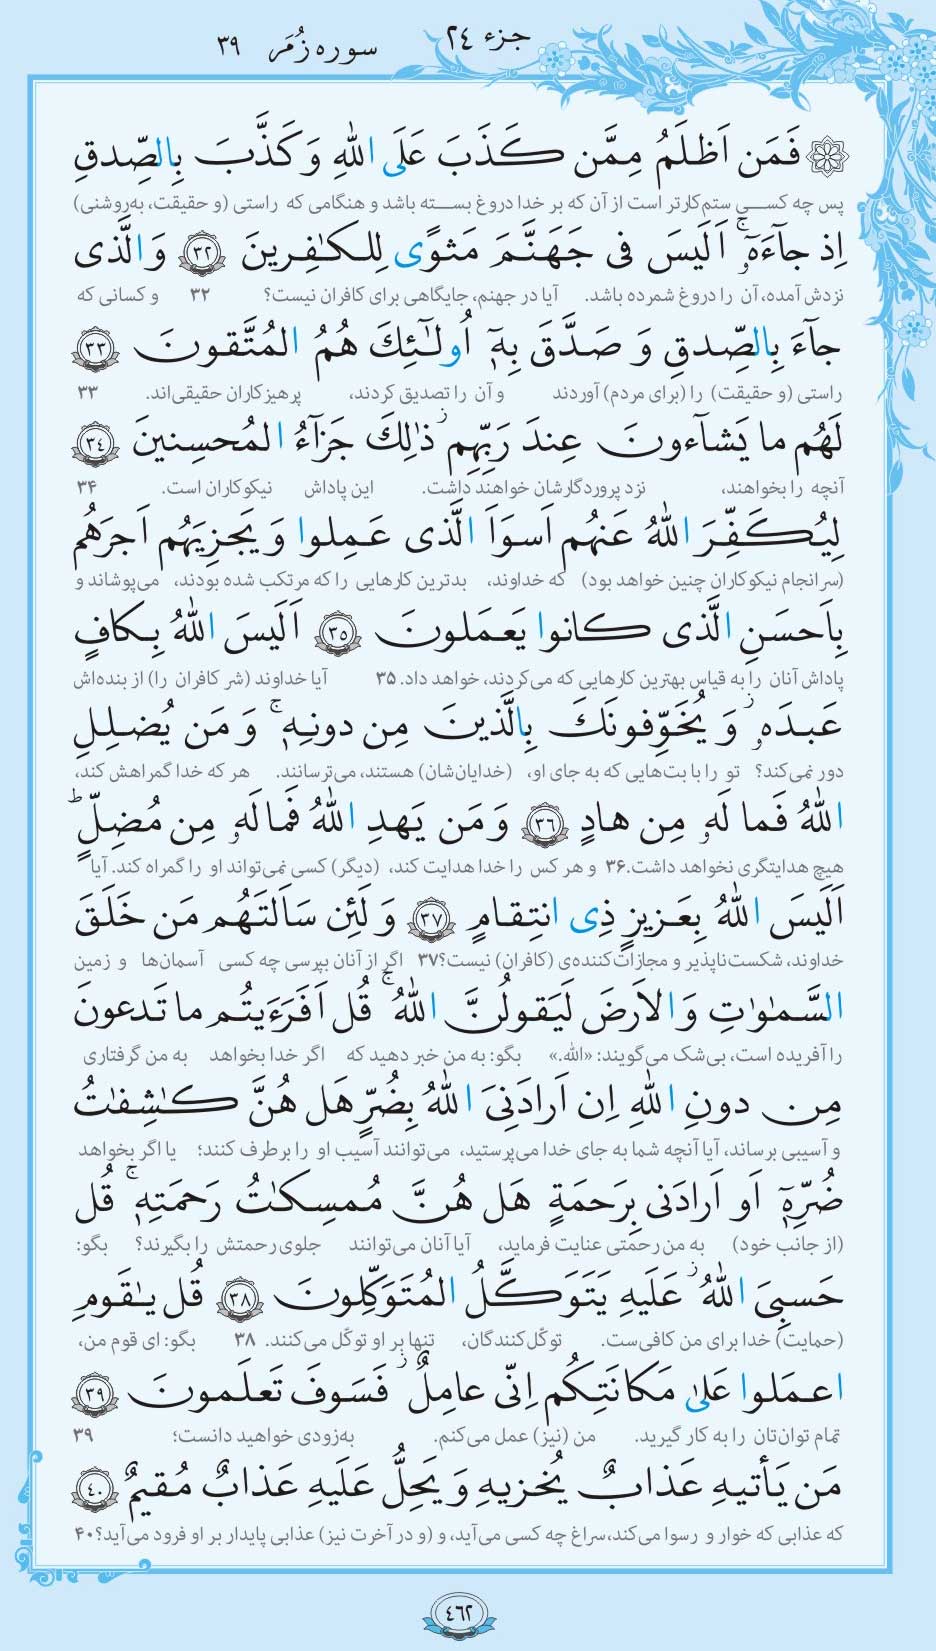 جزء ۲۴
سوره زُمَر ۳۹
فَمَن اَظلَمُ مِمَّن كَذَبَ عَلَى اللّٰهِ وَ كَذَّبَ بِالصِّدقِ
پس چه کسی ستم‌کارتر است از آن که بر خدا دروغ بسته باشد و هنگامی که راستی (و حقیقت، به‌روشنی)
اِذ جآءَهٗٓ ۚ اَلَيسَ فی جَهَنَّمَ مَثوًی لِلكٰفِرينَ ۳۲ وَ الَّذی
نزدش آمده، آن را دروغ شمرده باشد. آیا در جهنم، جایگاهی برای کافران نیست؟ ۳۲ و کسانی که
جآءَ بِالصِّدقِ وَ صَدَّقَ بِهٖٓ اُولٰٓئِكَ هُمُ المُتَّقونَ ۳۳
راستی (و حقیقت) را (برای مردم) آوردند و آن را تصدیق کردند، پرهیزکاران حقیقی‌اند. ۳۳
لَهُم ما يَشآءونَ عِندَ رَبِّهِم ۚ ذٰلِكَ جَزآءُ المُحسِنينَ ۳۴
آنچه را بخواهند، نزد پروردگارشان خواهند داشت. این پاداش نیکوکاران است. ۳۴
لِيُكَفِّرَ اللّٰهُ عَنهُم اَسوَاَ الَّذی عَمِلوا وَ يَجزِيَهُم اَجرَهُم
(سرانجام نیکوکاران چنین خواهد بود) که خداوند، بدترین کارهایی را که مرتکب شده بودند، می‌پوشاند و
بِاَحسَنِ الَّذی كانوا يَعمَلونَ ۳۵ اَلَيسَ اللّٰهُ بِكافٍ
پاداش آنان را به قیاس بهترین کارهایی که می‌کردند، خواهد داد. ۳۵ آیا خداوند (شر کافران را) از بنده‌اش
عَبدَهٗ ز وَ يُخَوِّفونَكَ بِالَّذينَ مِن دونِهٖ ۚ وَ مَن يُضلِلِ
دور نمی‌کند؟ تو را با بت‌هایی که به جای او، (خدایان‌شان) هستند، می‌ترسانند. هر که خدا گمراهش کند،
اللّٰهُ فَما لَهٗ مِن هادٍ ۳۶ وَ مَن يَهدِ اللّٰهُ فَما لَهٗ مِن مُضِلٍّ ط
هیچ هدایتگری نخواهد داشت. ۳۶ و هر کس را خدا هدایت کند، (دیگر) کسی نمی‌تواند او را گمراه کند. آیا
اَلَيسَ اللّٰهُ بِعَزيزٍ ذِی انتِقامٍ ۳۷ وَ لَئِن سَاَلتَهُم مَن خَلَقَ
خداوند، شکست‌ناپذیر و مجازات‌کننده‌ی (کافران) نیست؟ ۳۷ اگر از آنان بپرسی چه کسی آسمان‌ها و زمین
السَّمٰوٰتِ وَ الاَرضَ لَيَقولُنَّ اللّٰهُ ۚ قُل اَفَرَءَيتُم ما تَدعونَ
را آفریده است، بی‌شک می‌گویند: «الله.» بگو: به من خبر دهید که اگر خدا بخواهد به من گرفتاری
مِن دونِ اللّٰهِ اِن اَرادَنِیَ اللّٰهُ بِضُرٍّ هَل هُنَّ كٰشِفٰتُ
و آسیبی برساند، آیا آنچه شما به جای خدا می‌پرستید، می‌توانند آسیب او را برطرف کنند؛ یا اگر بخواهد
ضُرِّهٖٓ اَو اَرادَنی بِرَحمَةٍ هَل هُنَّ مُمسِكٰتُ رَحمَتِهٖ ۚ قُل
(از جانب خود) به من رحمتی عنایت فرماید، آیا آنان می‌توانند جلوی رحمتش را بگیرند؟ بگو:
حَسبِیَ اللّٰهُ ز عَلَيهِ يَتَوَكَّلُ المُتَوَكِّلونَ ۳۸ قُل يٰقَومِ
(حمایت) خدا برای من کافی‌ست. توکّل‌کنندگان، تنها بر او توکّل می‌کنند. ۳۸ بگو: ای قوم من،
اعمَلوا عَلٰی مَكانَتِكُم اِنّی عامِلٌ ز فَسَوفَ تَعلَمونَ ۳۹
تمام توان‌تان را به کار گیرید. من (نیز) عمل می‌کنم. به‌زودی خواهید دانست؛ ۳۹
مَن يَأتيهِ عَذابٌ يُخزيهِ وَ يَحِلُّ عَلَيهِ عَذابٌ مُقيمٌ ۴۰
که عذابی که خوار و رسوا می‌کند، سراغ چه کسی می‌آید، و (و در آخرت نیز) عذابی پایدار بر او فرود می‌آید؟ ۴۰
۴۶۲